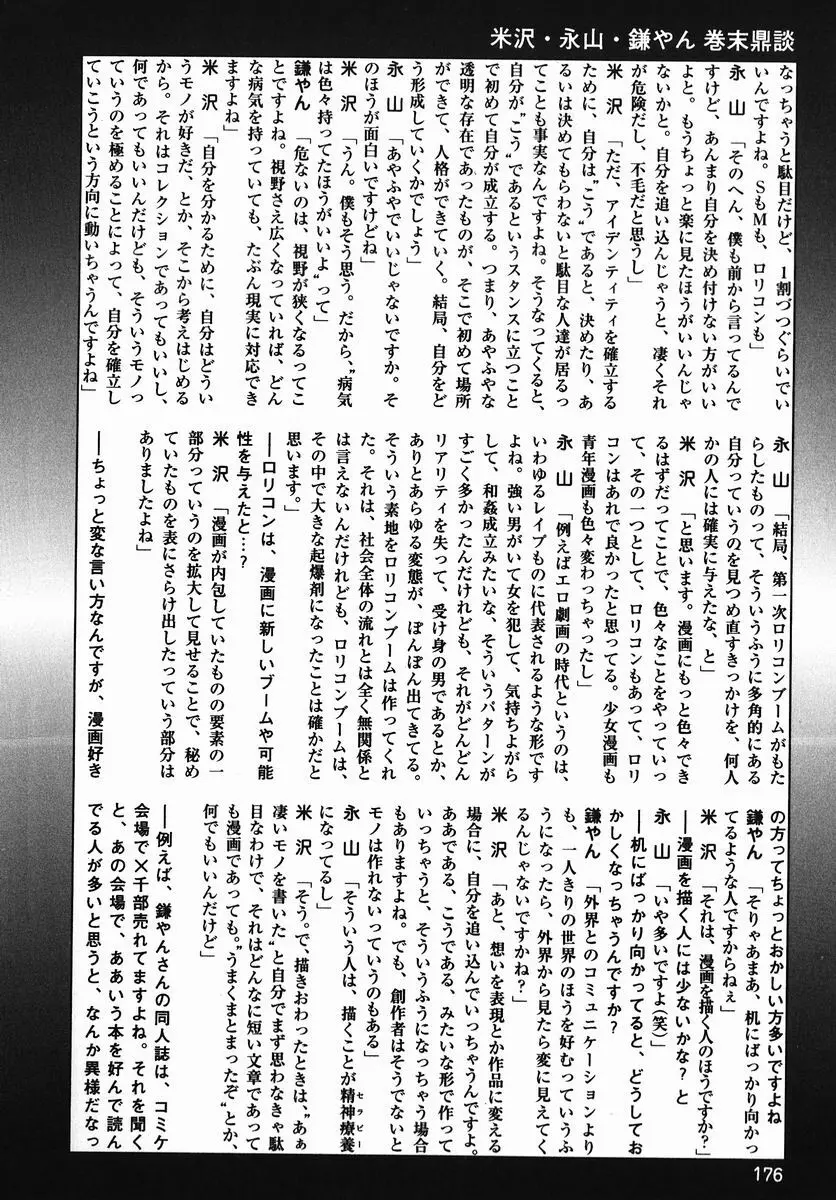 米沢・永山・鎌やん 巻末鼎談
なっちゃうと駄目だけど、１割づつぐらいでい
いんですよね。ＳもＭも、ロリコンも」
永　山　「そのへん、僕も前から言ってるんで
すけど、あんまり自分を決め付けない方がいい
よと。もうちょっと楽に見たほうがいいんじゃ
ないかと。自分を追い込んじゃうと、凄くそれ
が危険だし、不毛だと思うし」
米　沢　「ただ、アイデンティティを確立する
ために、自分は“こう”であると、決めたり、あ
るいは決めてもらわないと駄目な人達が居るっ
てことも事実なんですよね。そうなってくると、
自分が“こう”であるというスタンスに立つこと
で初めて自分が成立する。つまり、あやふやな
透明な存在であったものが、そこで初めて場所
ができて、人格ができていく。結局、自分をど
う形成していくかでしょう」
永　山　「あやふやでいいじゃないですか。そ
のほうが面白いですけどね」
米　沢　「うん。僕もそう思う。だから、“病気
は色々持ってたほうがいいよ”って」
鎌やん　「危ないのは、視野が狭くなるってこ
とですよね。視野さえ広くなっていれば、どん
な病気を持っていても、たぶん現実に対応でき
ますよね」
米　沢　「自分を分かるために、自分はどうい
うモノが好きだ、とか、そこから考えはじめる
から。それはコレクションであってもいいし、
何であってもいいんだけども、そういうモノっ
ていうのを極めることによって、自分を確立し
ていこうという方向に動いちゃうんですよね」
永　山　「結局、第一次ロリコンブームがもた
らしたものって、そういうふうに多角的にある
自分っていうのを見つめ直すきっかけを、何人
かの人には確実に与えたな、と」
米　沢　「と思います。漫画にもっと色々でき
るはずだってことで、色々なことをやっていっ
て、その一つとして、ロリコンもあって、ロリ
コンはあれで良かったと思ってる。少女漫画も
青年漫画も色々変わっちゃったし」
永　山　「例えばエロ劇画の時代というのは、
いわゆるレイプものに代表されるような形です
よね。強い男がいて女を犯して、気持ちよがら
して、和姦成立みたいな、そういうパターンが
すごく多かったんだけれども、それがどんどん
リアリティを失って、受け身の男であるとか、
ありとあらゆる変態が、ぽんぽん出てきてる。
そういう素地をロリコンブームは作ってくれ
た。それは、社会全体の流れとは全く無関係と
は言えないんだけれども、ロリコンブームは、
その中で大きな起爆剤になったことは確かだと
思います。」
──ロリコンは、漫画に新しいブームや可能
性を与えたと…？
米　沢　「漫画が内包していたものの要素の一
部分っていうのを拡大して見せることで、秘め
ていたものを表にさらけ出したっていう部分は
ありましたよね」
──ちょっと変な言い方なんですが、漫画好き
の方ってちょっとおかしい方多いですよね
鎌やん　「そりゃあまあ、机にばっかり向かっ
てるような人ですからねぇ」
米　沢　「それは、漫画を描く人のほうですか？」
──漫画を描く人には少ないかな？ と
永　山　「いや多いですよ（笑）」
──机にばっかり向かってると、どうしてお
かしくなっちゃうんですか？
鎌やん　「外界とのコミュニケーションより
も、一人きりの世界のほうを好むっていうふ
うになったら、外界から見たら変に見えてく
るんじゃないですかね？」
米　沢　「あと、想いを表現とか作品に変える
場合に、自分を追い込んでいっちゃうんですよ。
ああである、こうである、みたいな形で作って
いっちゃうと、そういうふうになっちゃう場合
もありますよね。でも、創作者はそうでないと
モノは作れないっていうのもある」
永　山　「そういう人は、描くことが精神療養（セラピー）
になってるし」
米　沢　「そう。で、描きおわったときは、“あぁ
凄いモノを書いた”と自分でまず思わなきゃ駄
目なわけで、それはどんなに短い文章であって
も漫画であっても。“うまくまとまったぞ”とか、
何でもいいんだけど」
──例えば、鎌やんさんの同人誌は、コミケ
会場で×千部売れてますよね。それを聞く
と、あの会場で、ああいう本を好んで読ん
でる人が多いと思うと、なんか異様だなっ
176